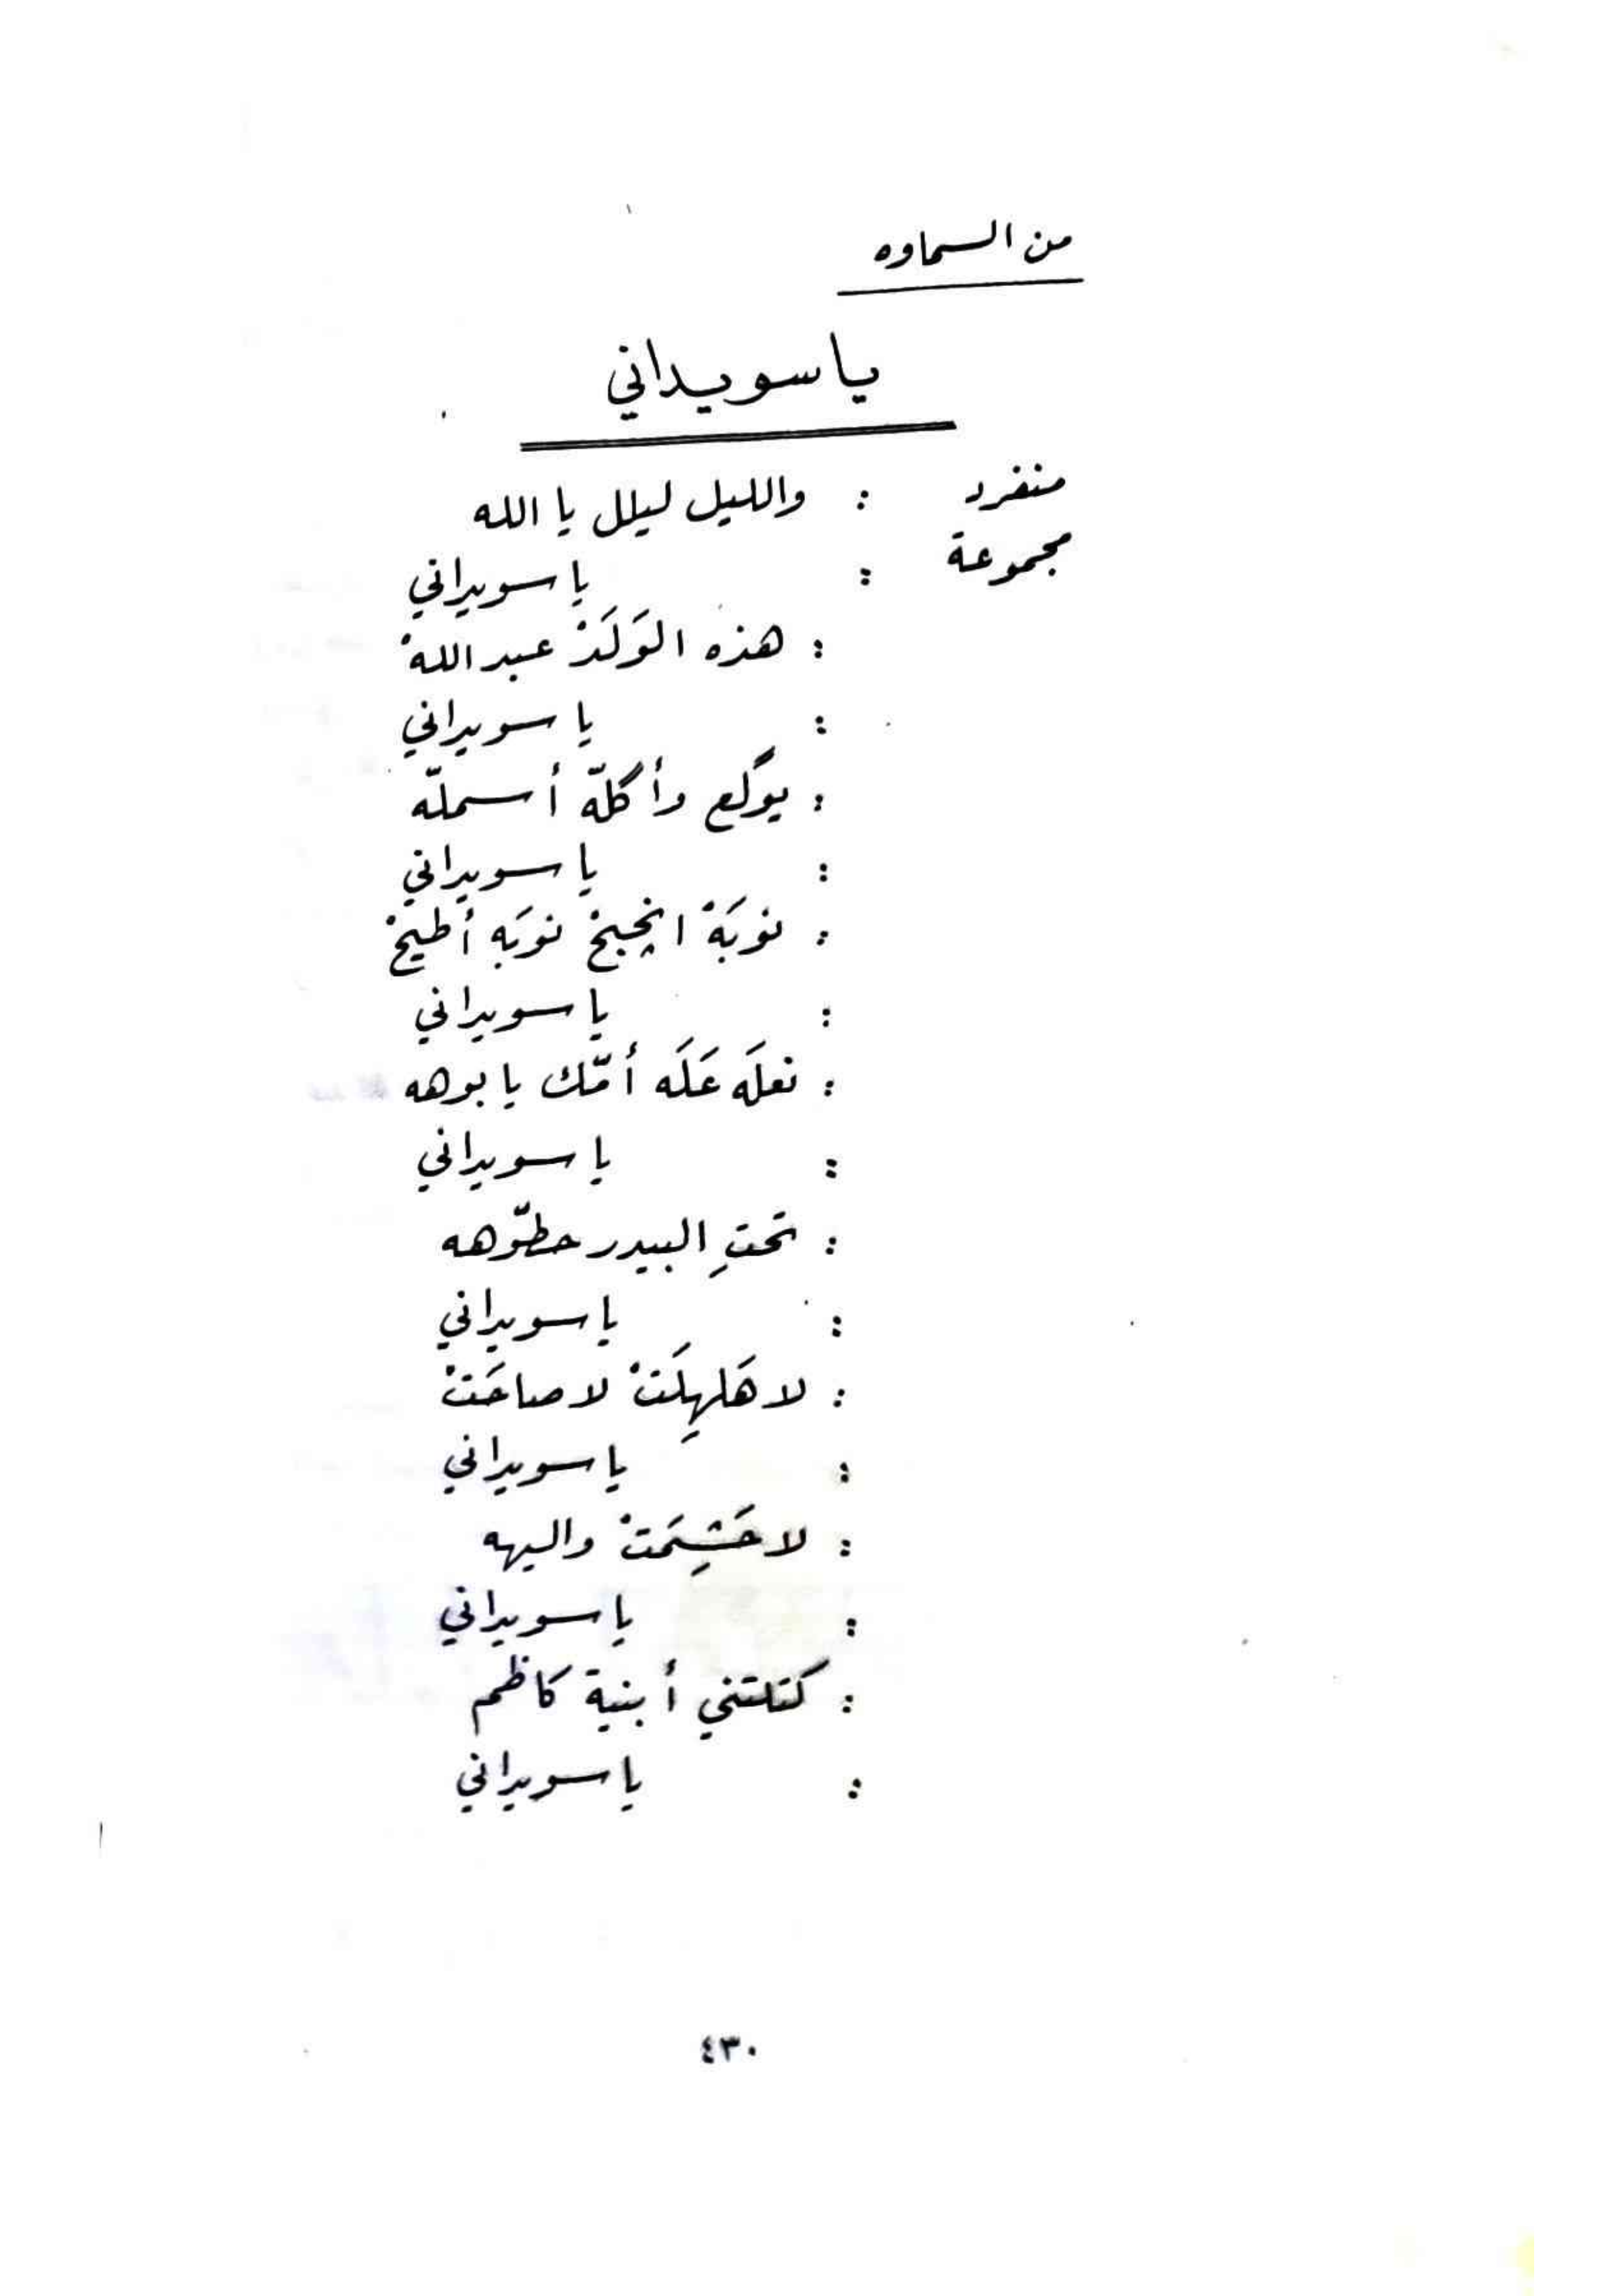 من السماوه
يا سويداني
منفرد : والليل ليلل يا الله
مجموعة : يا سويداني
: هذه الوَلَدْ عبد اللهْ
: يا سويداني
: يوگع وأگلّه أسملّه
: يا سويداني
: نوبَهْ انچبخْ نوبَه أطيخْ
: يا سويداني
: نعلَه عَلَه أمّك يا بوهه
: يا سويداني
: تحتِ البيدر حطّوهه
: يا سويداني
: لا هَلهِلَتْ لا صاحَتْ
: يا سويداني
: لا حَشِمَتْ واليهه
: يا سويداني
: كتلتني أبنية كاظم
: يا سويداني
٤٣٠